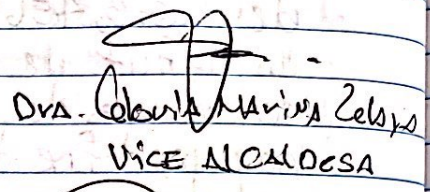 Dra. Marina Zelaya
Vice Alcaldesa